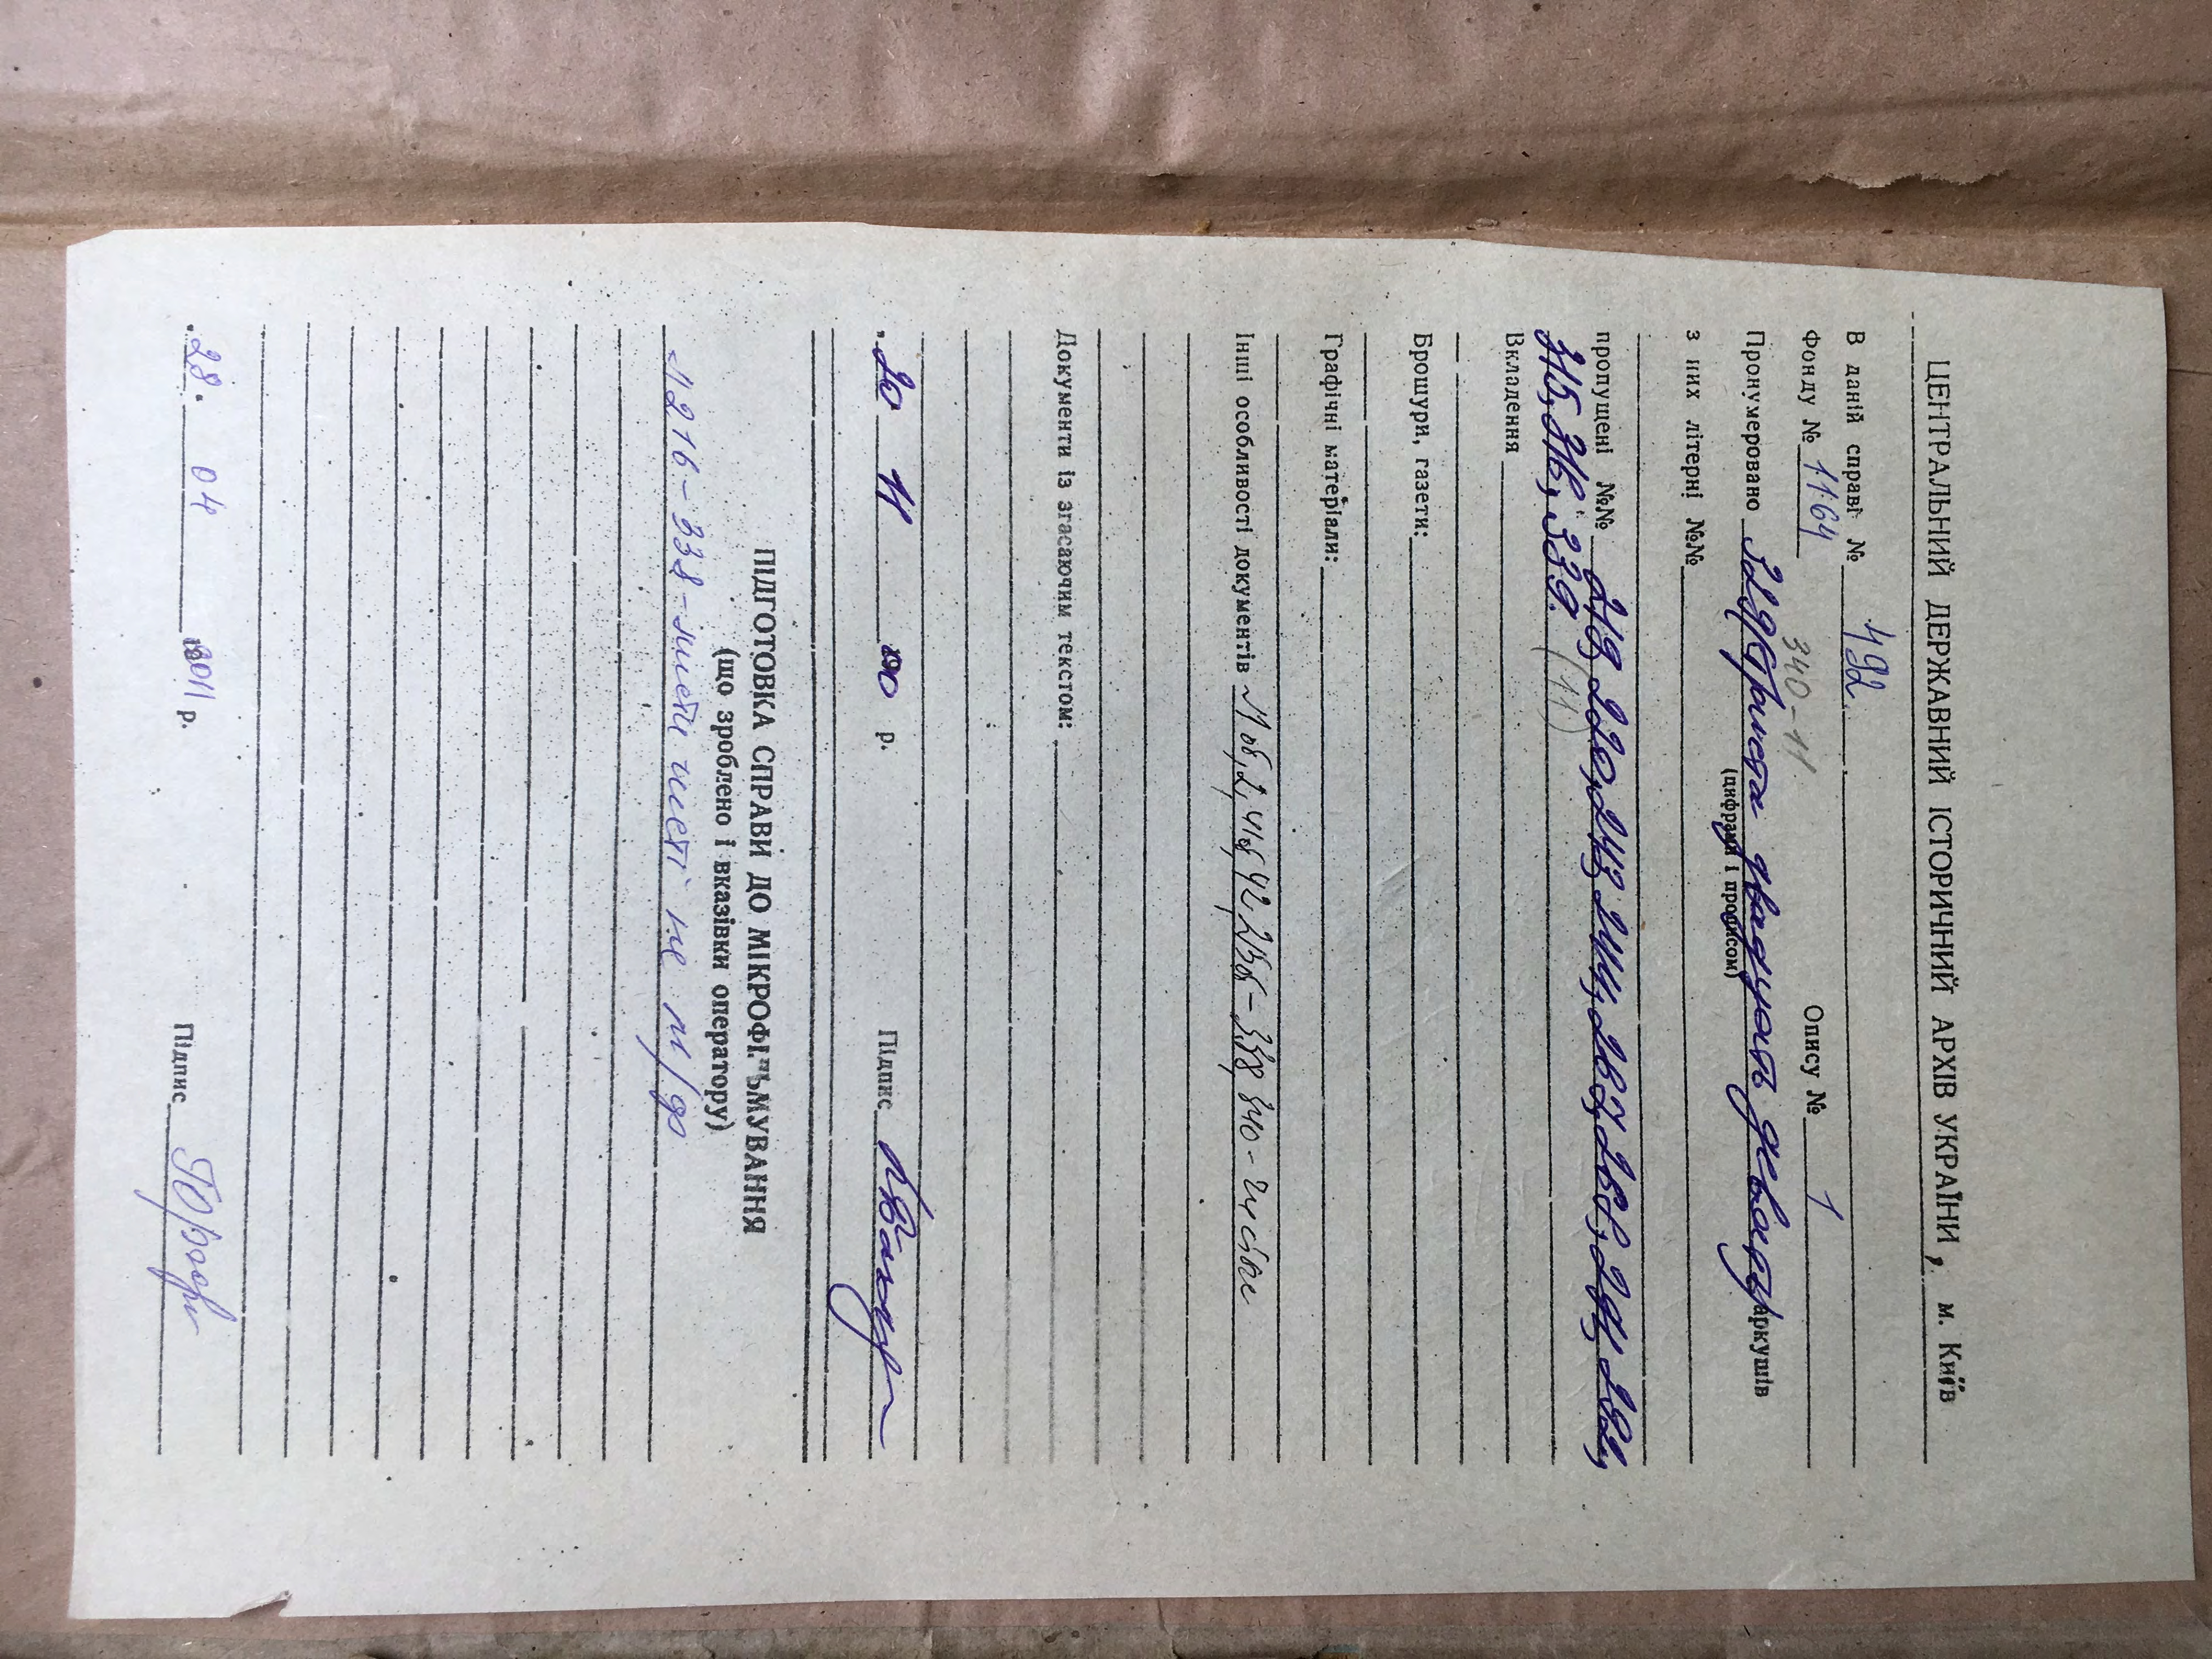 ЦЕНТРАЛЬНИЙ ДЕРЖАВНИЙ ІСТОРИЧНИЙ АРХІВ УКРАЇНИ, м. Київ
В даній справі № 492
Фонду № 1164 Опису № 1
340-11
Пронумеровано 329 (триста двадцять девять) аркушів
(цифрами і прописом)
з них літерні №№
пропущені №№ 219, 220, 243, 244,
315, 316, 339. (11)
Вкладення
Брошури, газети:
Графічні матеріали:
Інші особливості документів 340 - чисті
Документи із згасаючим текстом:
"20 11 1990 р. Підпис
ПІДГОТОВКА СПРАВИ ДО МІКРОФІЛЬМУВАННЯ
(що зроблено і вказівки оператору)
216-338 - листи чисті не м/ф
"28. 04 2011 р. Підпис